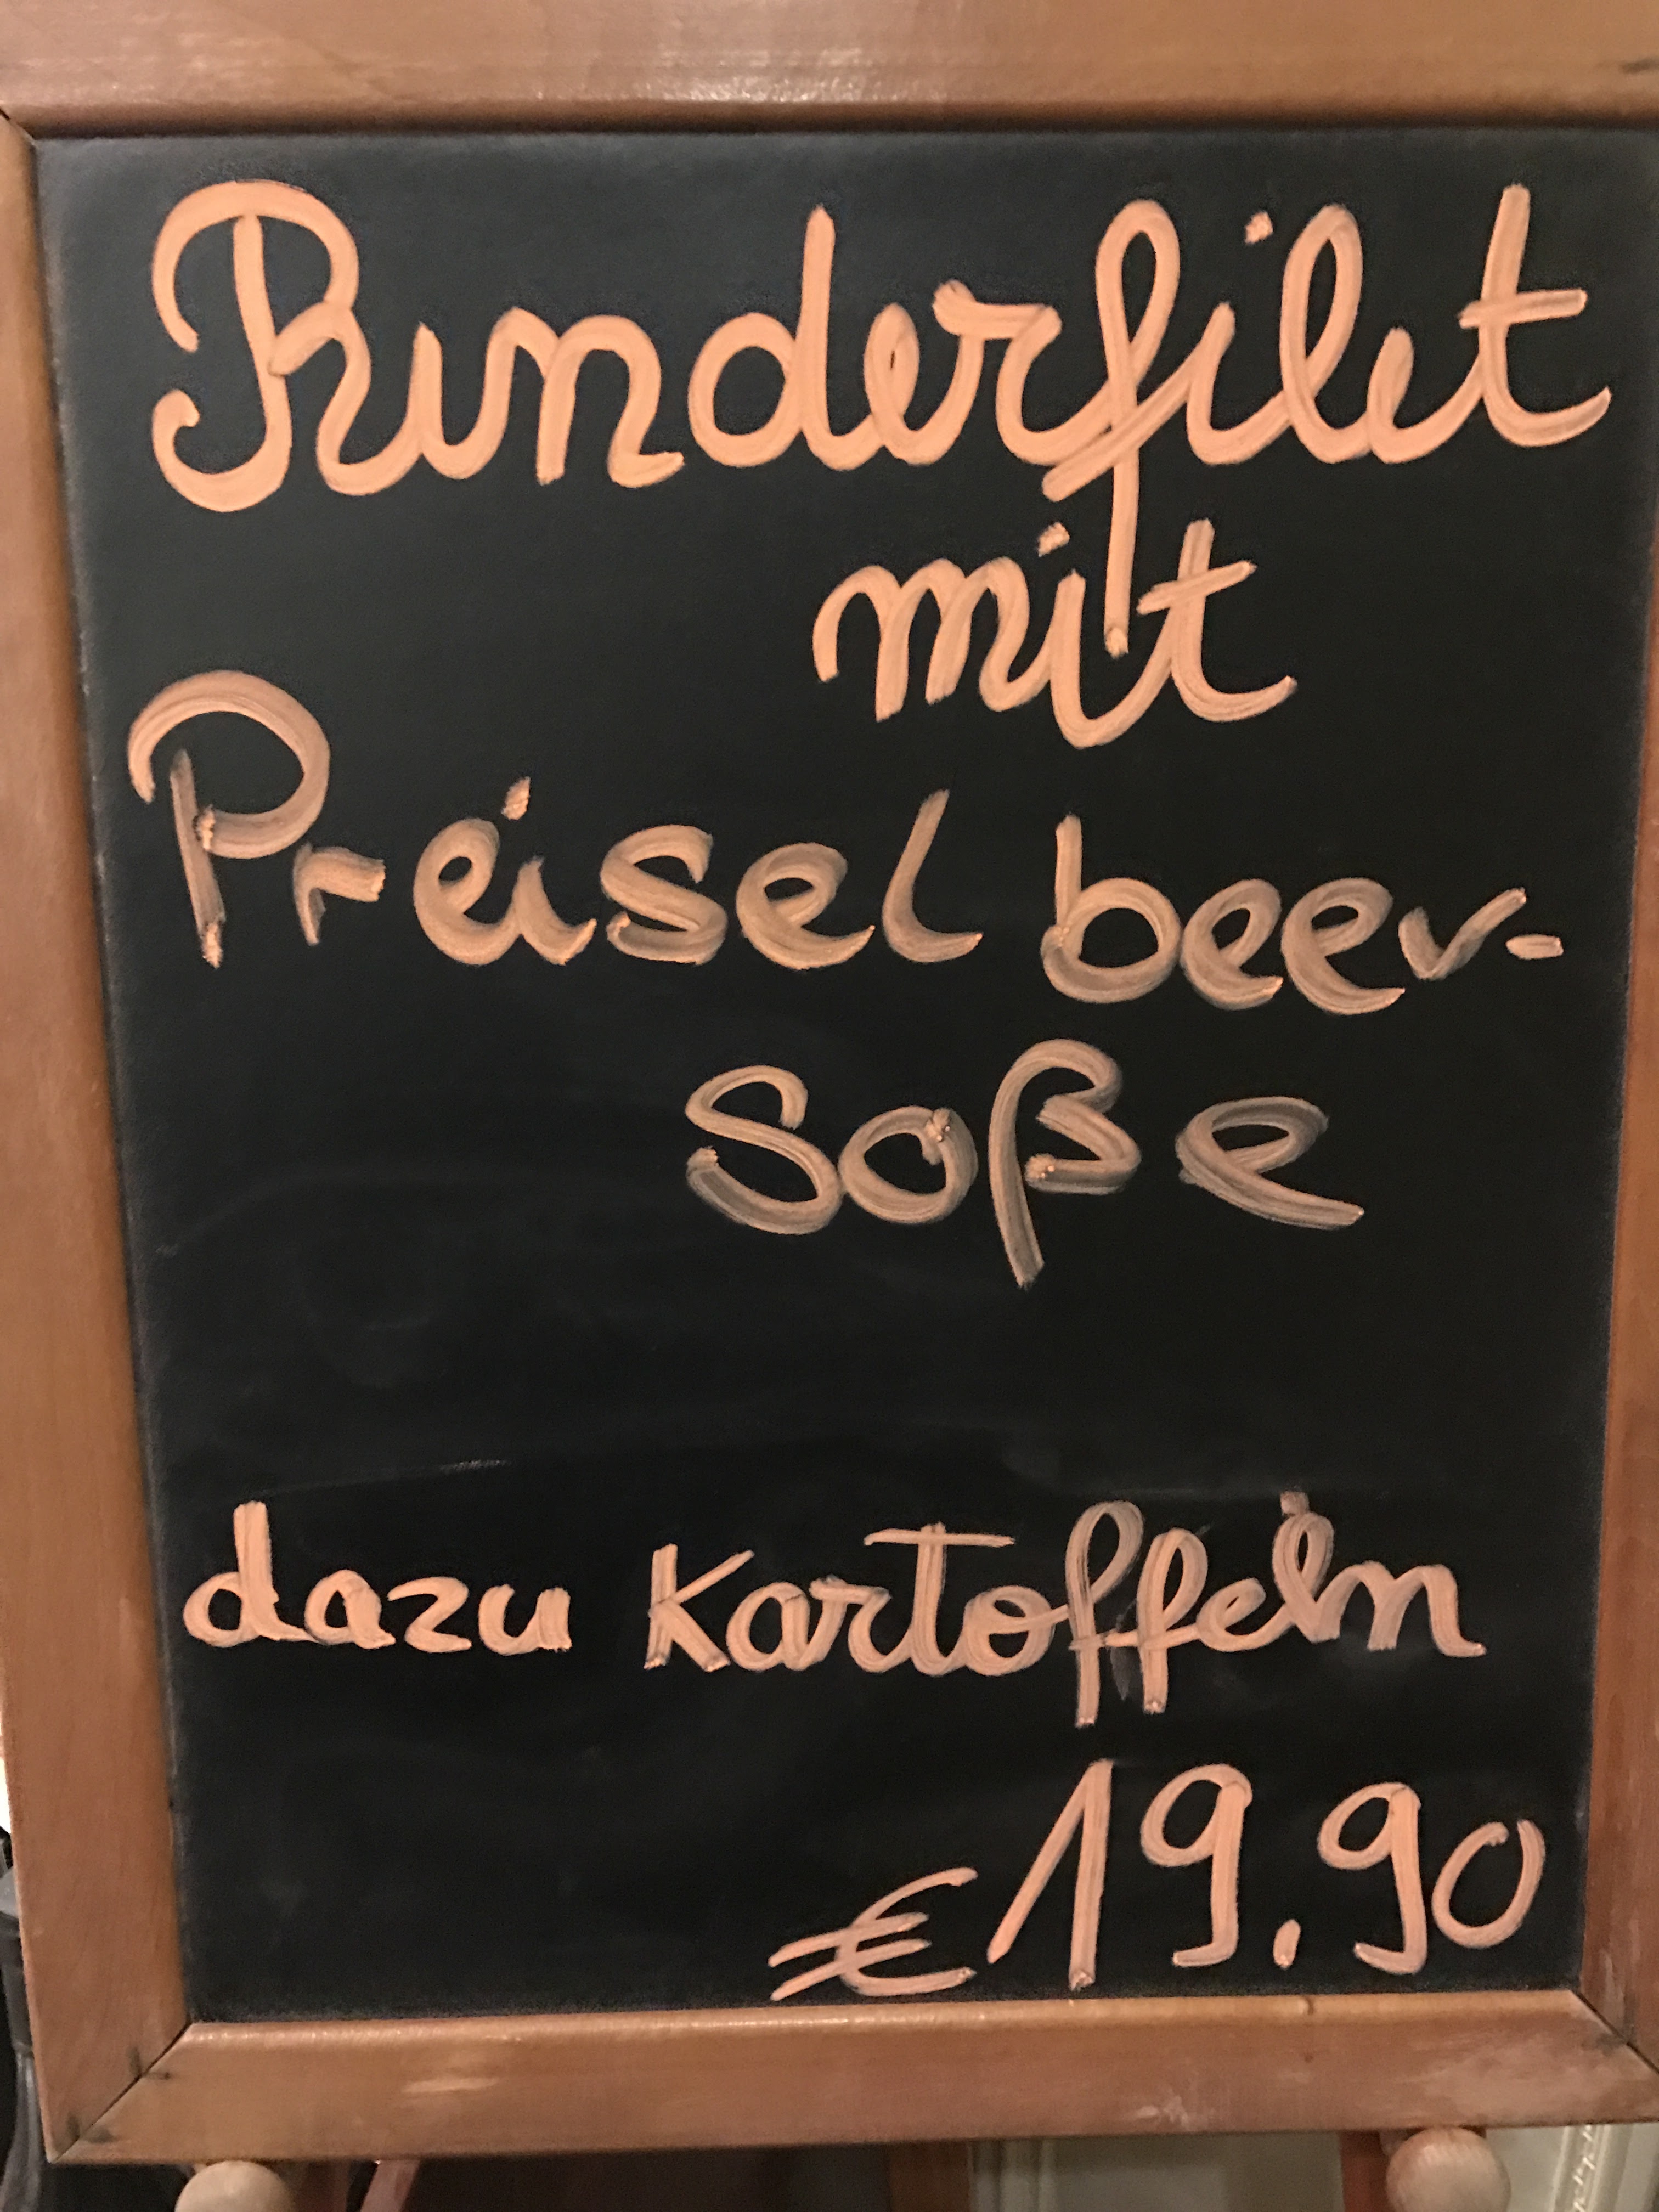 Rinderfilet
mit
Preiselbeer-
Soße
dazu Kartoffeln
€ 19.90